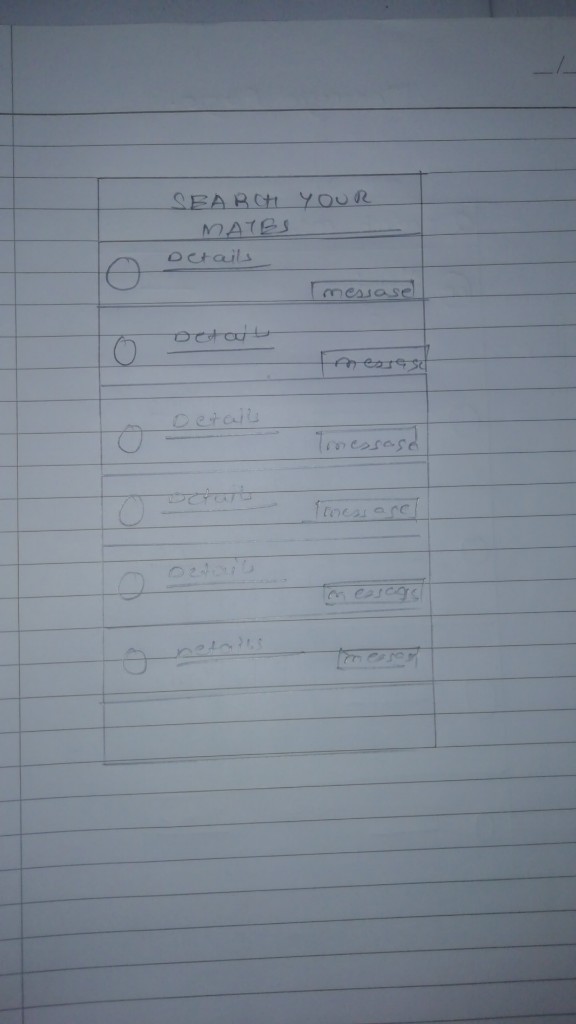 SEARCH YOUR
MATES
Details
message
Details
message
Details
message
Details
message
Details
message
Details
message